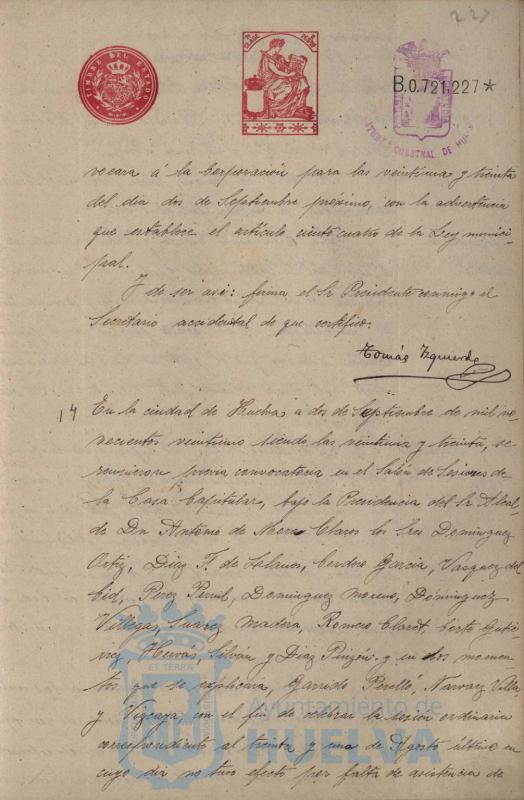 227
TIMBRE DEL ESTADO
B.0.721,227*
vocara á la Corporación para las veintiuna y treinta
del dia dos de Septiembre próximo, con la advertencia
que establece el artículo ciento cuatro de la Ley munici-
pal.
Y de ser asi: firma el Sr Presidente conmigo el
Secretario accidental de que certifico.
Tomás Izquierdo
14 En la ciudad de Huelva á dos de Septiembre de mil no-
vecientos veintiuno siendo las veintiuna y treinta, se
reunieron previa convocatoria en el Salón de Sesiones de
la Casa Capitular, bajo la Presidencia del Sr Alcal-
de Dn Antonio de Mora Claros los Sres Dominguez
Ortiz, Diaz F. de Lalanos, Cordero Garcia, Vazquez del
Cid, Perez Persil, Dominguez Moreno, Dominguez
Villegas, Suarez Madera, Romero Claret, Gutie-
rrez Hervás, Silván y Diaz Pinzón y en dos momen-
tos que se explicaria, Garrido Perelló, Narvaez Villa
y Vizcaya, con el fin de celebrar la sesión ordinaria
correspondiente al treinta y uno de Agosto último en
cuyo dia no tuvo efecto por falta de asistencia de
ET TERRA
Ayuntamiento de
HUELVA